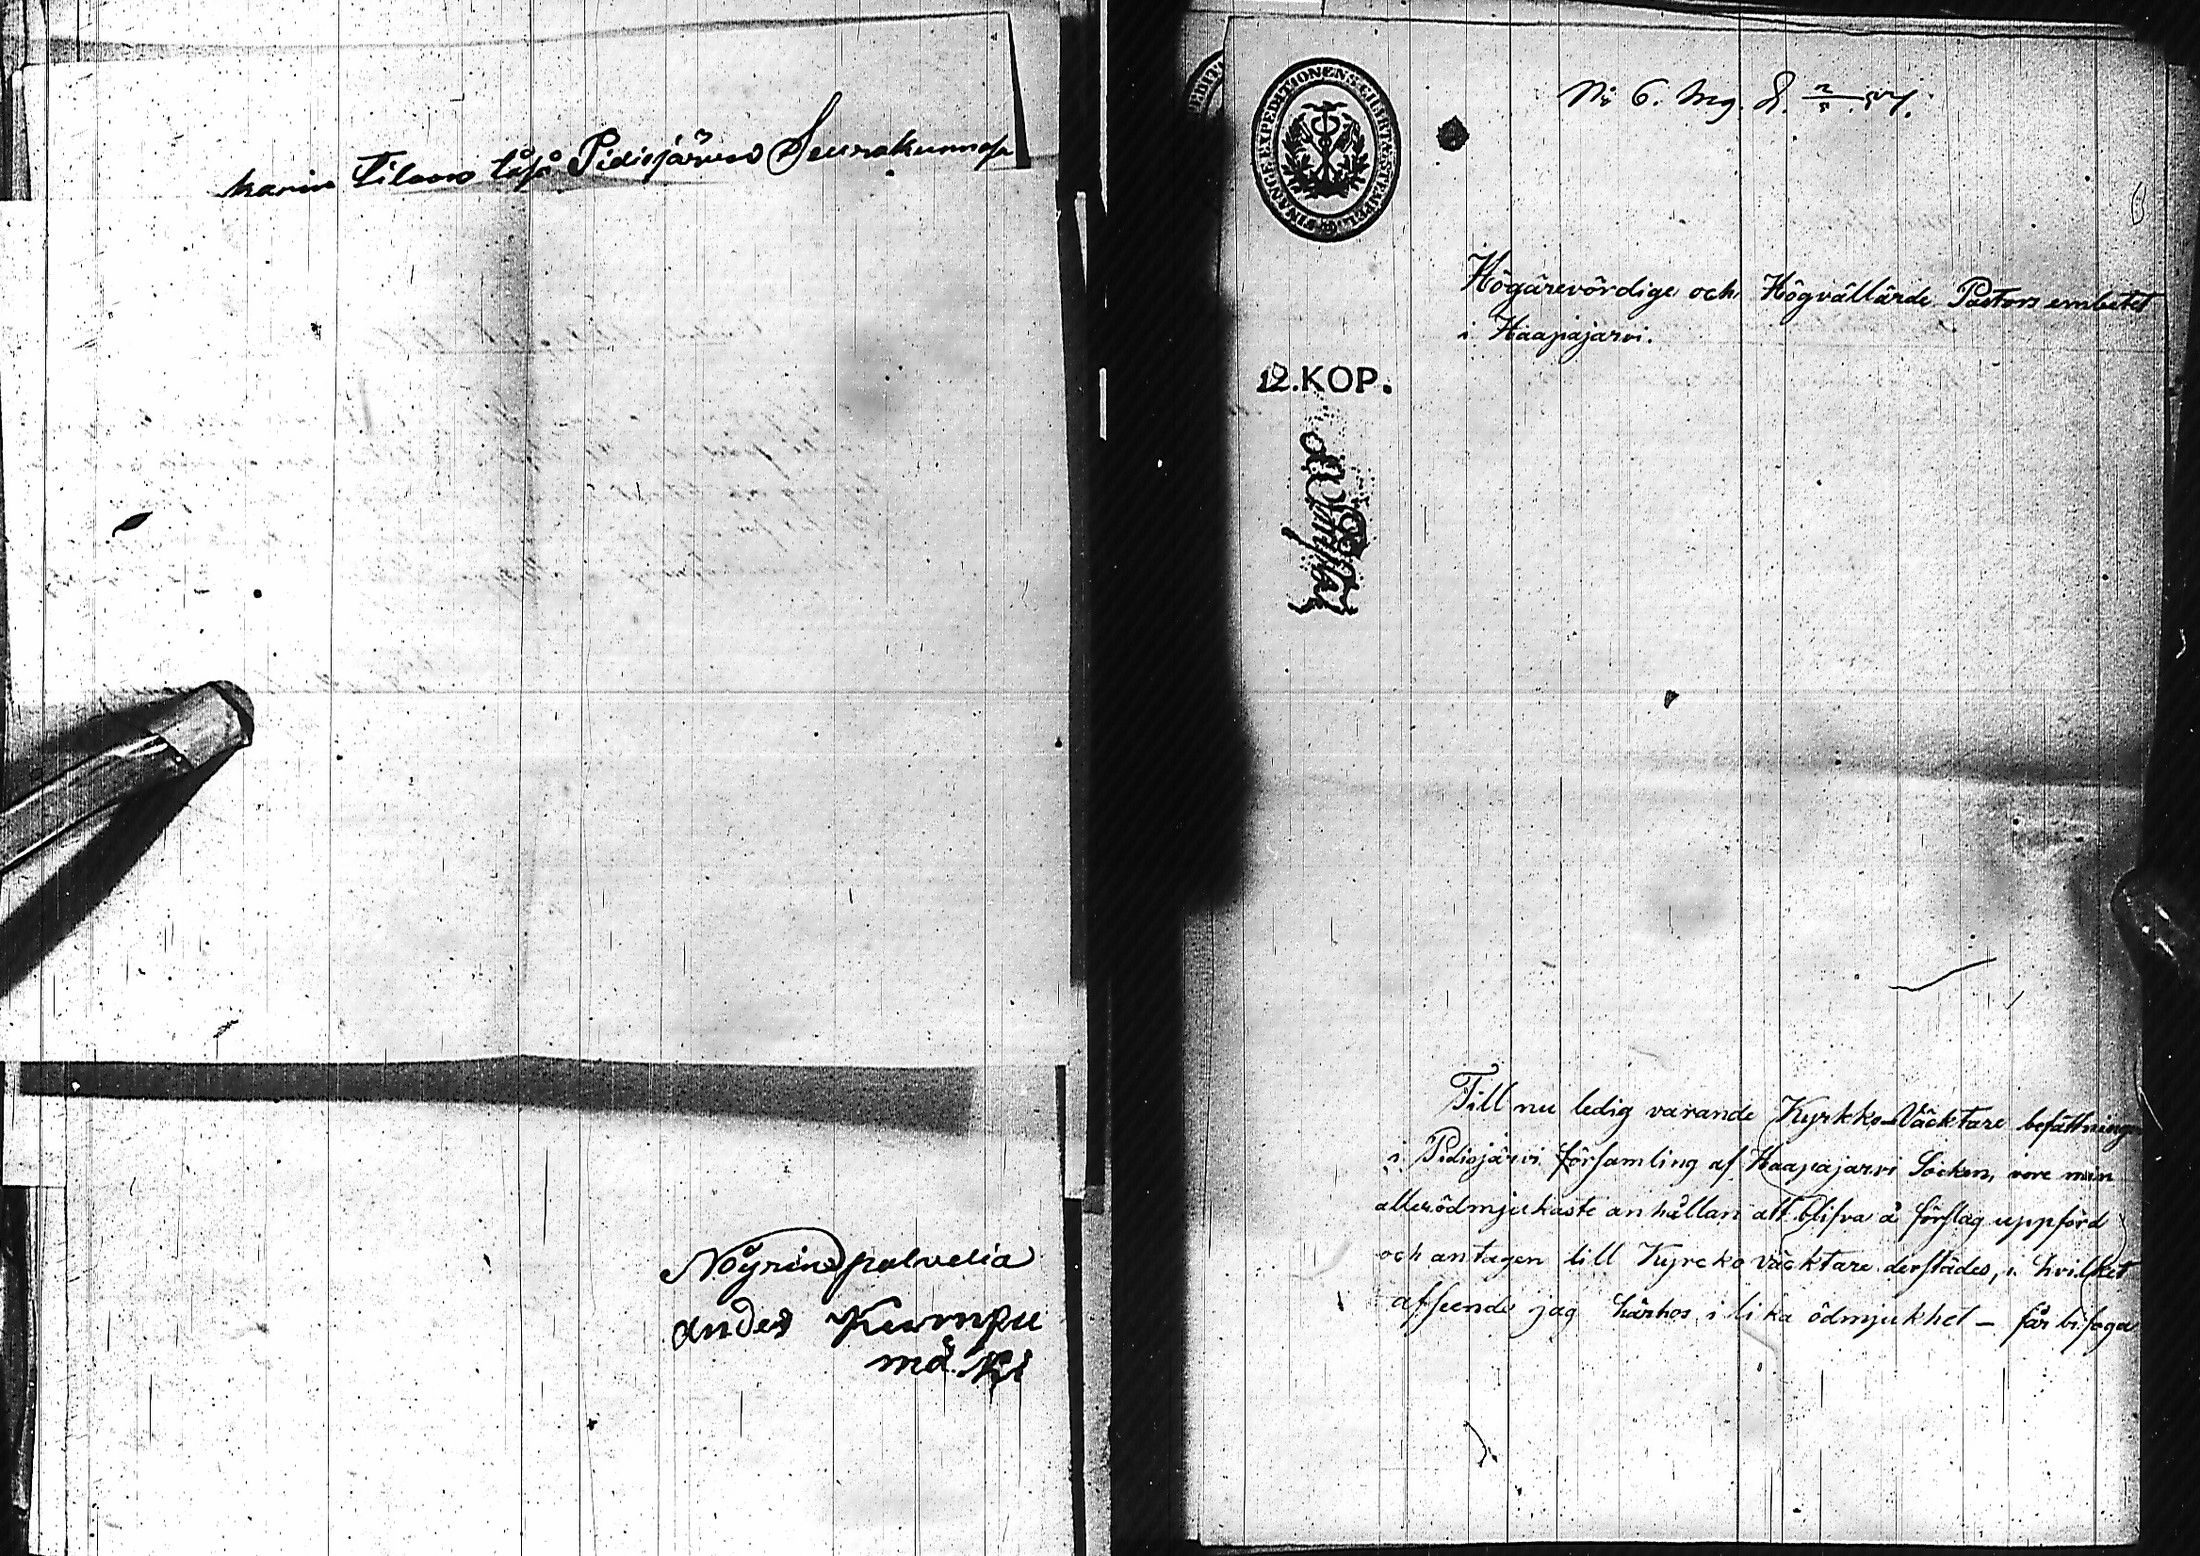 karin Tilaan täsä Pidisjärven Seurakunnasa
Nöyrin palvelia
Anders Kumpu
mäki
No 6.
FINANCE EXPEDITIONENS CHARTÆ STEMPEL
Högärevördige och Högvällärde Pastors embetet
i Haapajarvi.
12. KOP.
Till nu ledig varande Kyrkko-Väcktare befattningen
i Pidisjärvi församling af Haapajarvi Socken, vore min
allerödmjukaste anhållan att blifva å förslag uppförd
och antagen till Kyrcko väcktare derstädes, i hvilket
afseende jag härhos i lika ödmjukhet - får bifoga